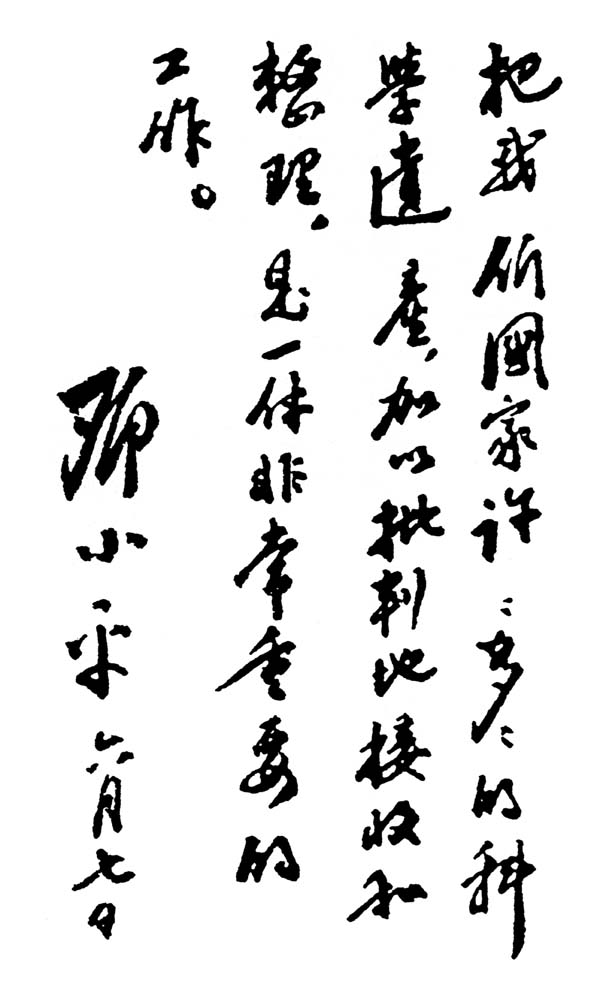 把我们國家許〻多〻的科
學遺產，加以批判地接收和
整理，是一件非常重要的
工作。
鄧小平 六月七日